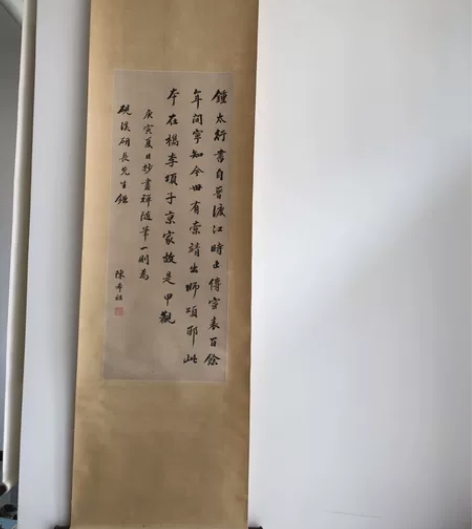 鍾太行書自晉渡江時止傳宣表百餘
年間寧知今世有索靖出師頌耶此
本在檇李項子京家故是甲觀
庚寅夏日抄畫禪隨筆一則為
硯溪長先生
陳希祖